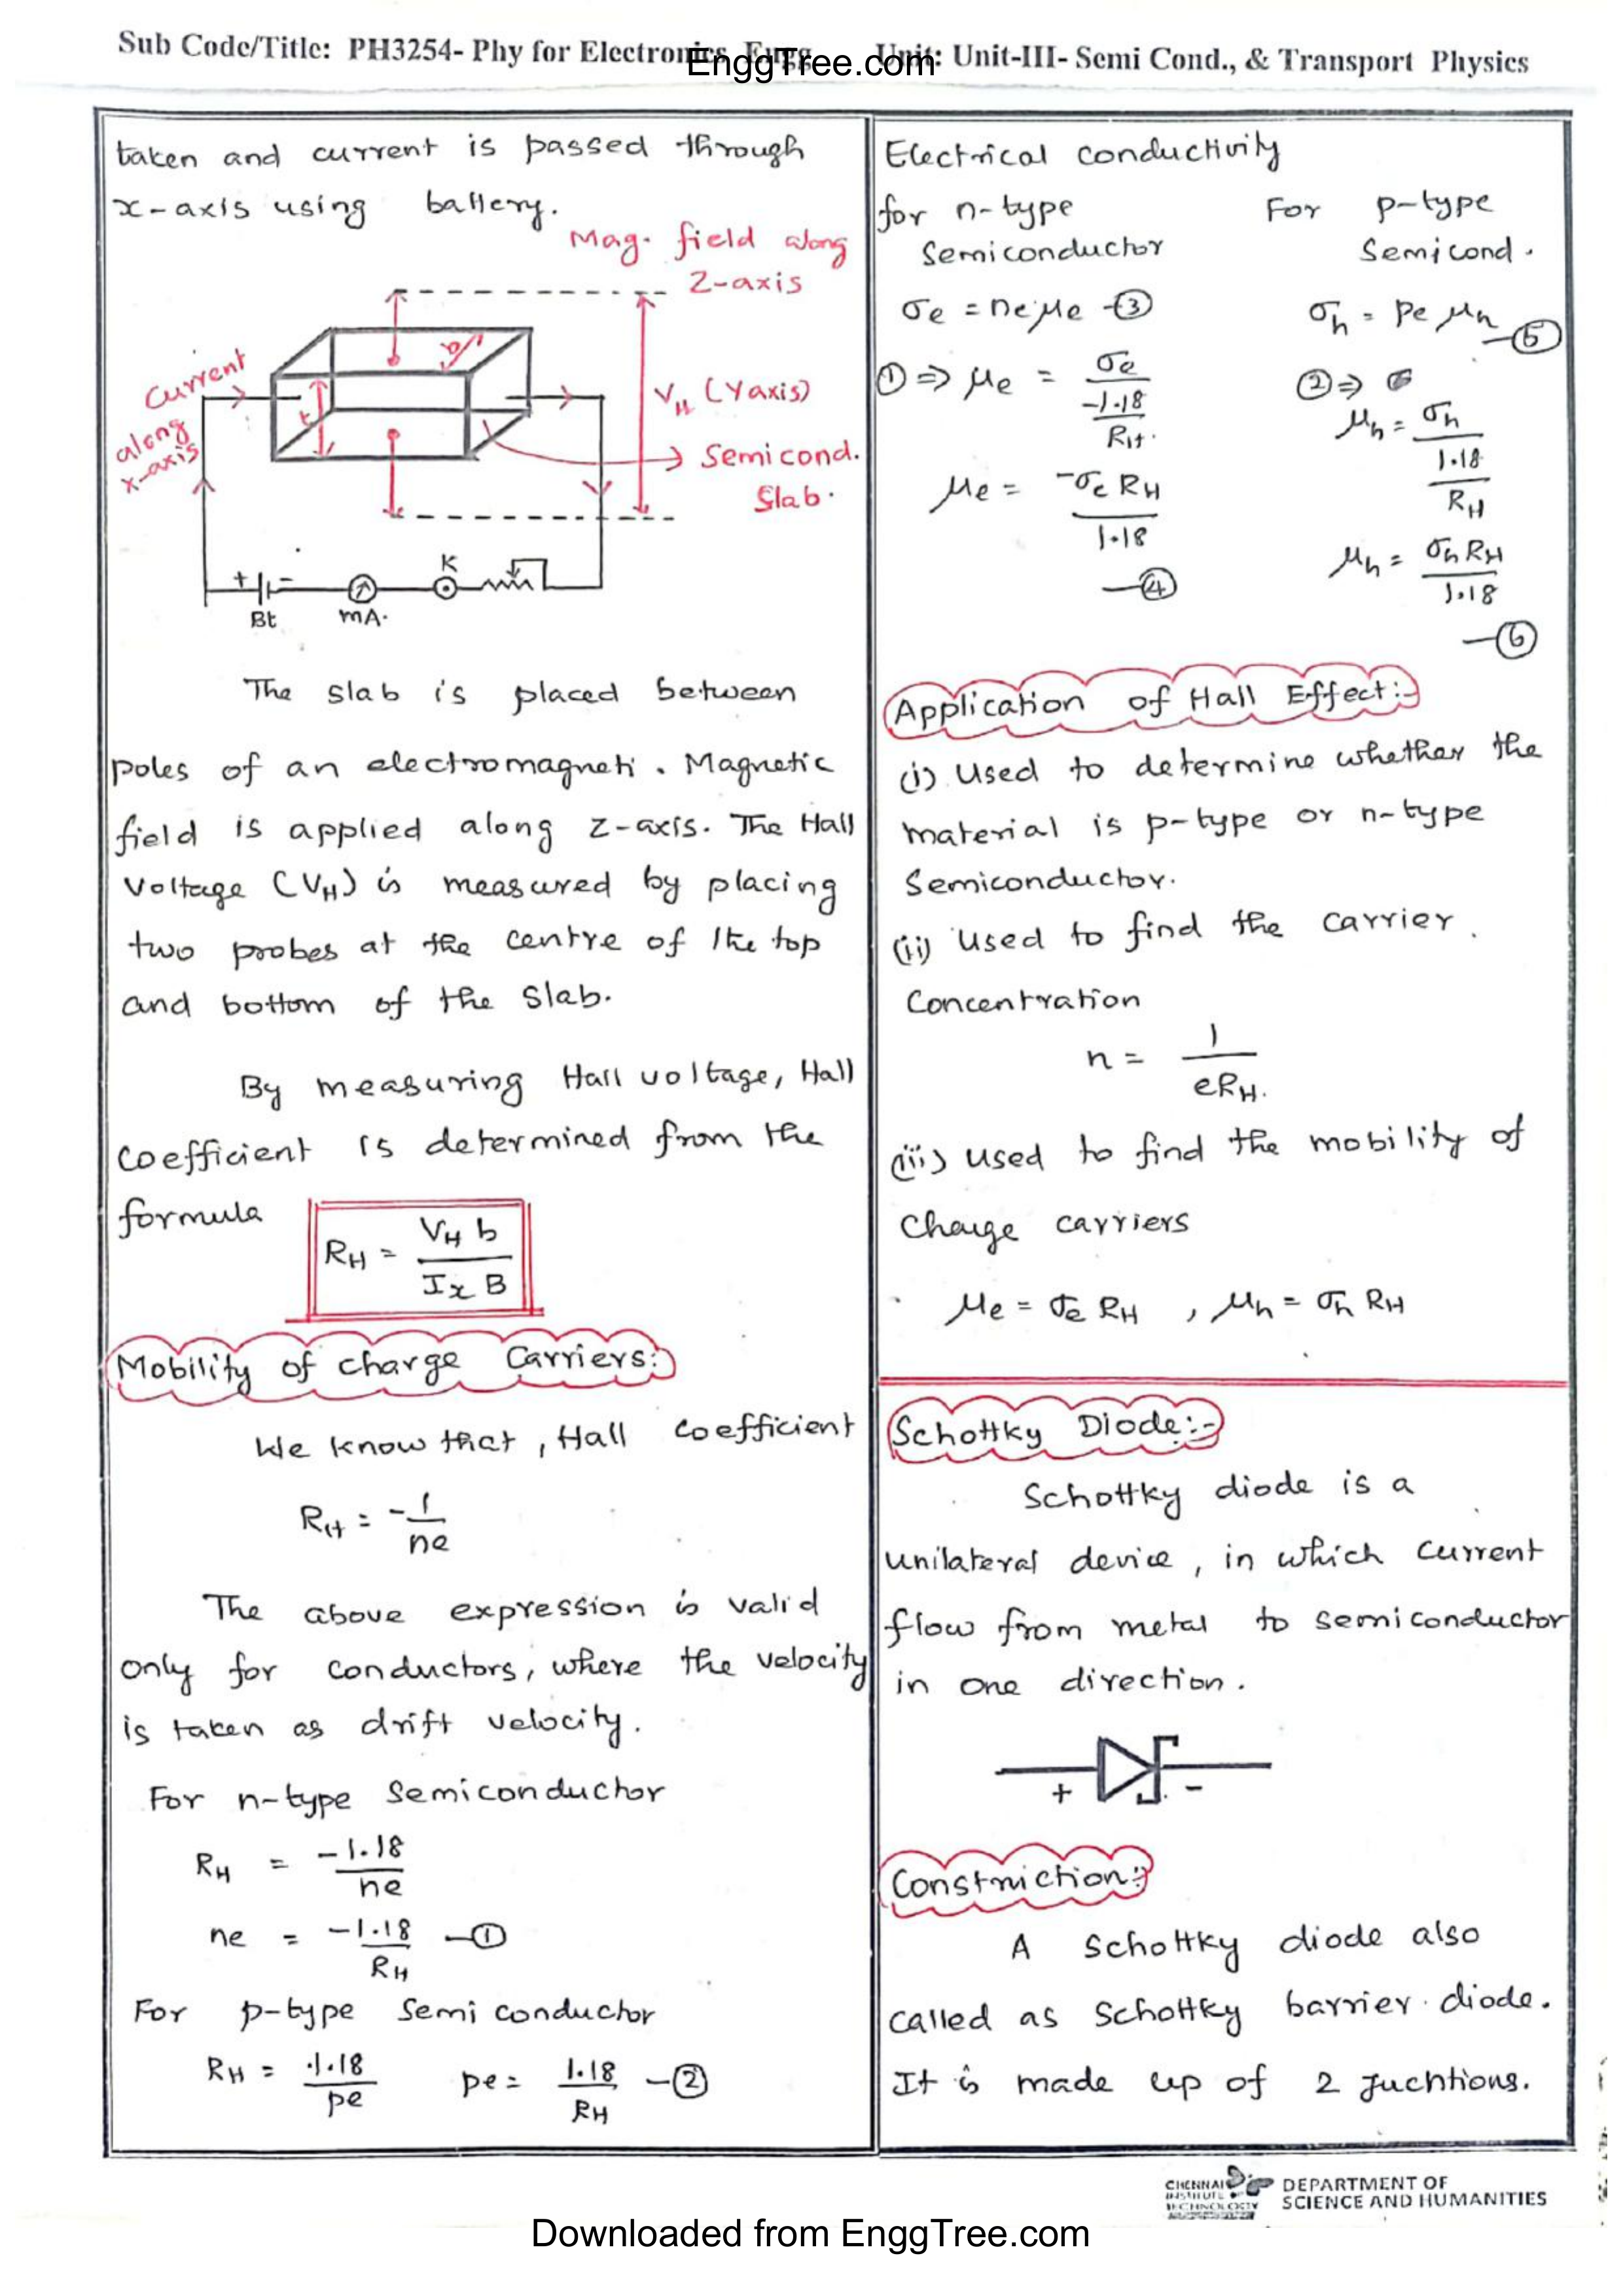 Sub Code/Title: PH3254- Phy for Electronics Engg Unit: Unit-III- Semi Cond., & Transport Physics
EnggTree.com
taken and current is passed through
x-axis using battery.
Mag. field along
Z-axis
b
Current
along
x-axis
t
V_H (Y axis)
Semicond.
Slab.
+ -
Bt
mA.
K
The slab is placed between
poles of an electromagneti. Magnetic
field is applied along z-axis. The Hall
Voltage (V_H) is measured by placing
two probes at the centre of the top
and bottom of the slab.
By measuring Hall voltage, Hall
coefficient is determined from the
formula
R_H = V_H b / I_x B
Mobility of charge Carriers:
We know that, Hall coefficient
R_H = -1/ne
The above expression is valid
only for conductors, where the velocity
is taken as drift velocity.
For n-type semiconductor
R_H = -1.18/ne
ne = -1.18/R_H —①
For p-type semi conductor
R_H = 1.18/pe pe = 1.18/R_H —②
Electrical conductivity
for n-type For p-type
Semiconductor Semicond.
σe = neμe —③ σh = peμh —⑤
①⇒ μe = σe / (-1.18/R_H) ②⇒
μh = σh / (1.18/R_H)
μe = -σe R_H / 1.18 —④
μh = σh R_H / 1.18 —⑥
Application of Hall Effect:-
(i) Used to determine whether the
material is p-type or n-type
Semiconductor.
(ii) Used to find the carrier.
Concentration
n = 1/eR_H.
(iii) used to find the mobility of
Charge carriers
μe = σe R_H , μh = σh R_H
Schottky Diode:-
Schottky diode is a
unilateral device, in which current
flow from metal to semiconductor
in one direction.
+ -
Construction:
A schottky diode also
called as schottky barrier diode.
It is made up of 2 juchtions.
CHENNAI
INSTITUTE OF
TECHNOLOGY
DEPARTMENT OF
SCIENCE AND HUMANITIES
Downloaded from EnggTree.com